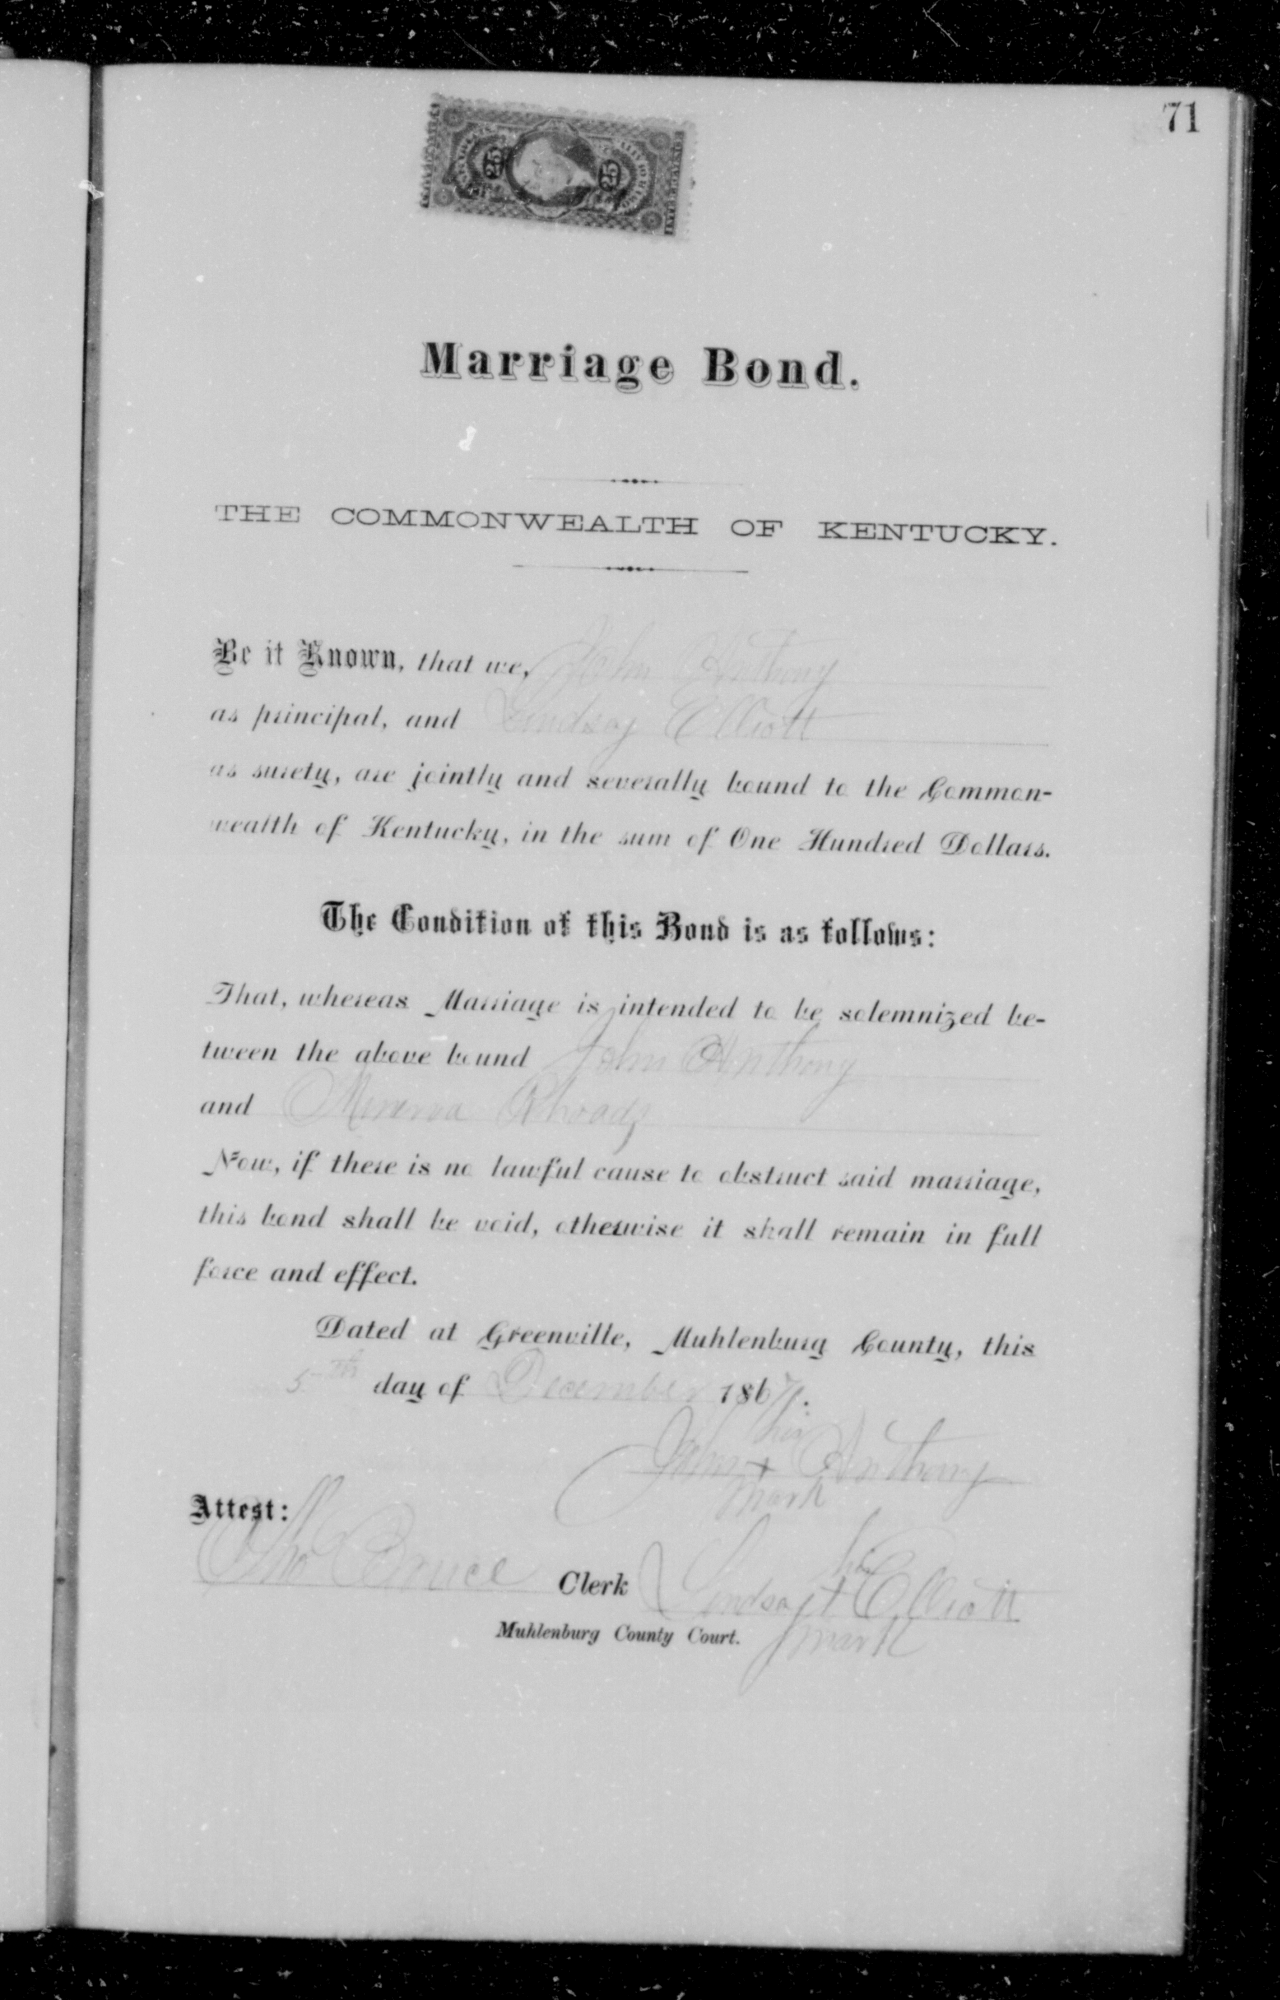 71
25 25
Marriage Bond.
THE COMMONWEALTH OF KENTUCKY.
Be it Known, that we, John Anthony
as principal, and Lindsay Elliott
as surety, are jointly and severally bound to the Common-
wealth of Kentucky, in the sum of One Hundred Dollars.
The Condition of this Bond is as follows:
That, whereas Marriage is intended to be solemnized be-
tween the above bound John Anthony
and Minerva Rhoads
Now, if there is no lawful cause to obstruct said marriage,
this bond shall be void, otherwise it shall remain in full
force and effect.
Dated at Greenville, Muhlenburg County, this
5th day of December 1867.
his
John + Anthony
mark
Attest:
Tho Bruce Clerk
his
Lindsay + Elliott
mark
Muhlenburg County Court.